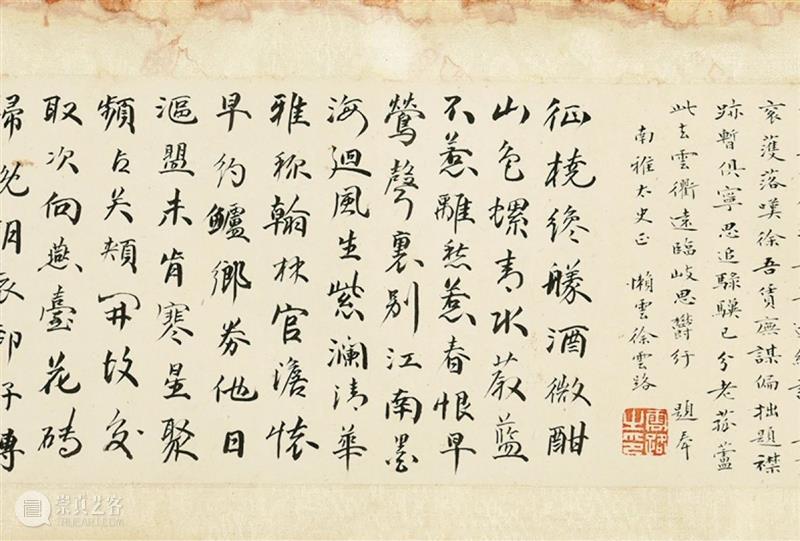 濩落嘆徐吾賃廡謀偏拙題襟
跡暫俱寧思追騄驥已分老菰蘆
此去雲衢遠臨岐思鬱紆 題奉
南雅太史正 懶雲徐雲路
征橈纔艤酒微酣
山色螺青水蔚藍
不惹離愁惹春恨早
鶯聲裏別江南墨
海迴風生紫瀾清華
雅稱翰林官澹懷
早約鱸鄉券他日
漚盟未肯寒星聚
頻占笑頰開故交
取次向燕臺花磚
歸晚朝衣卸
崇真艺客
TRUEART.COM